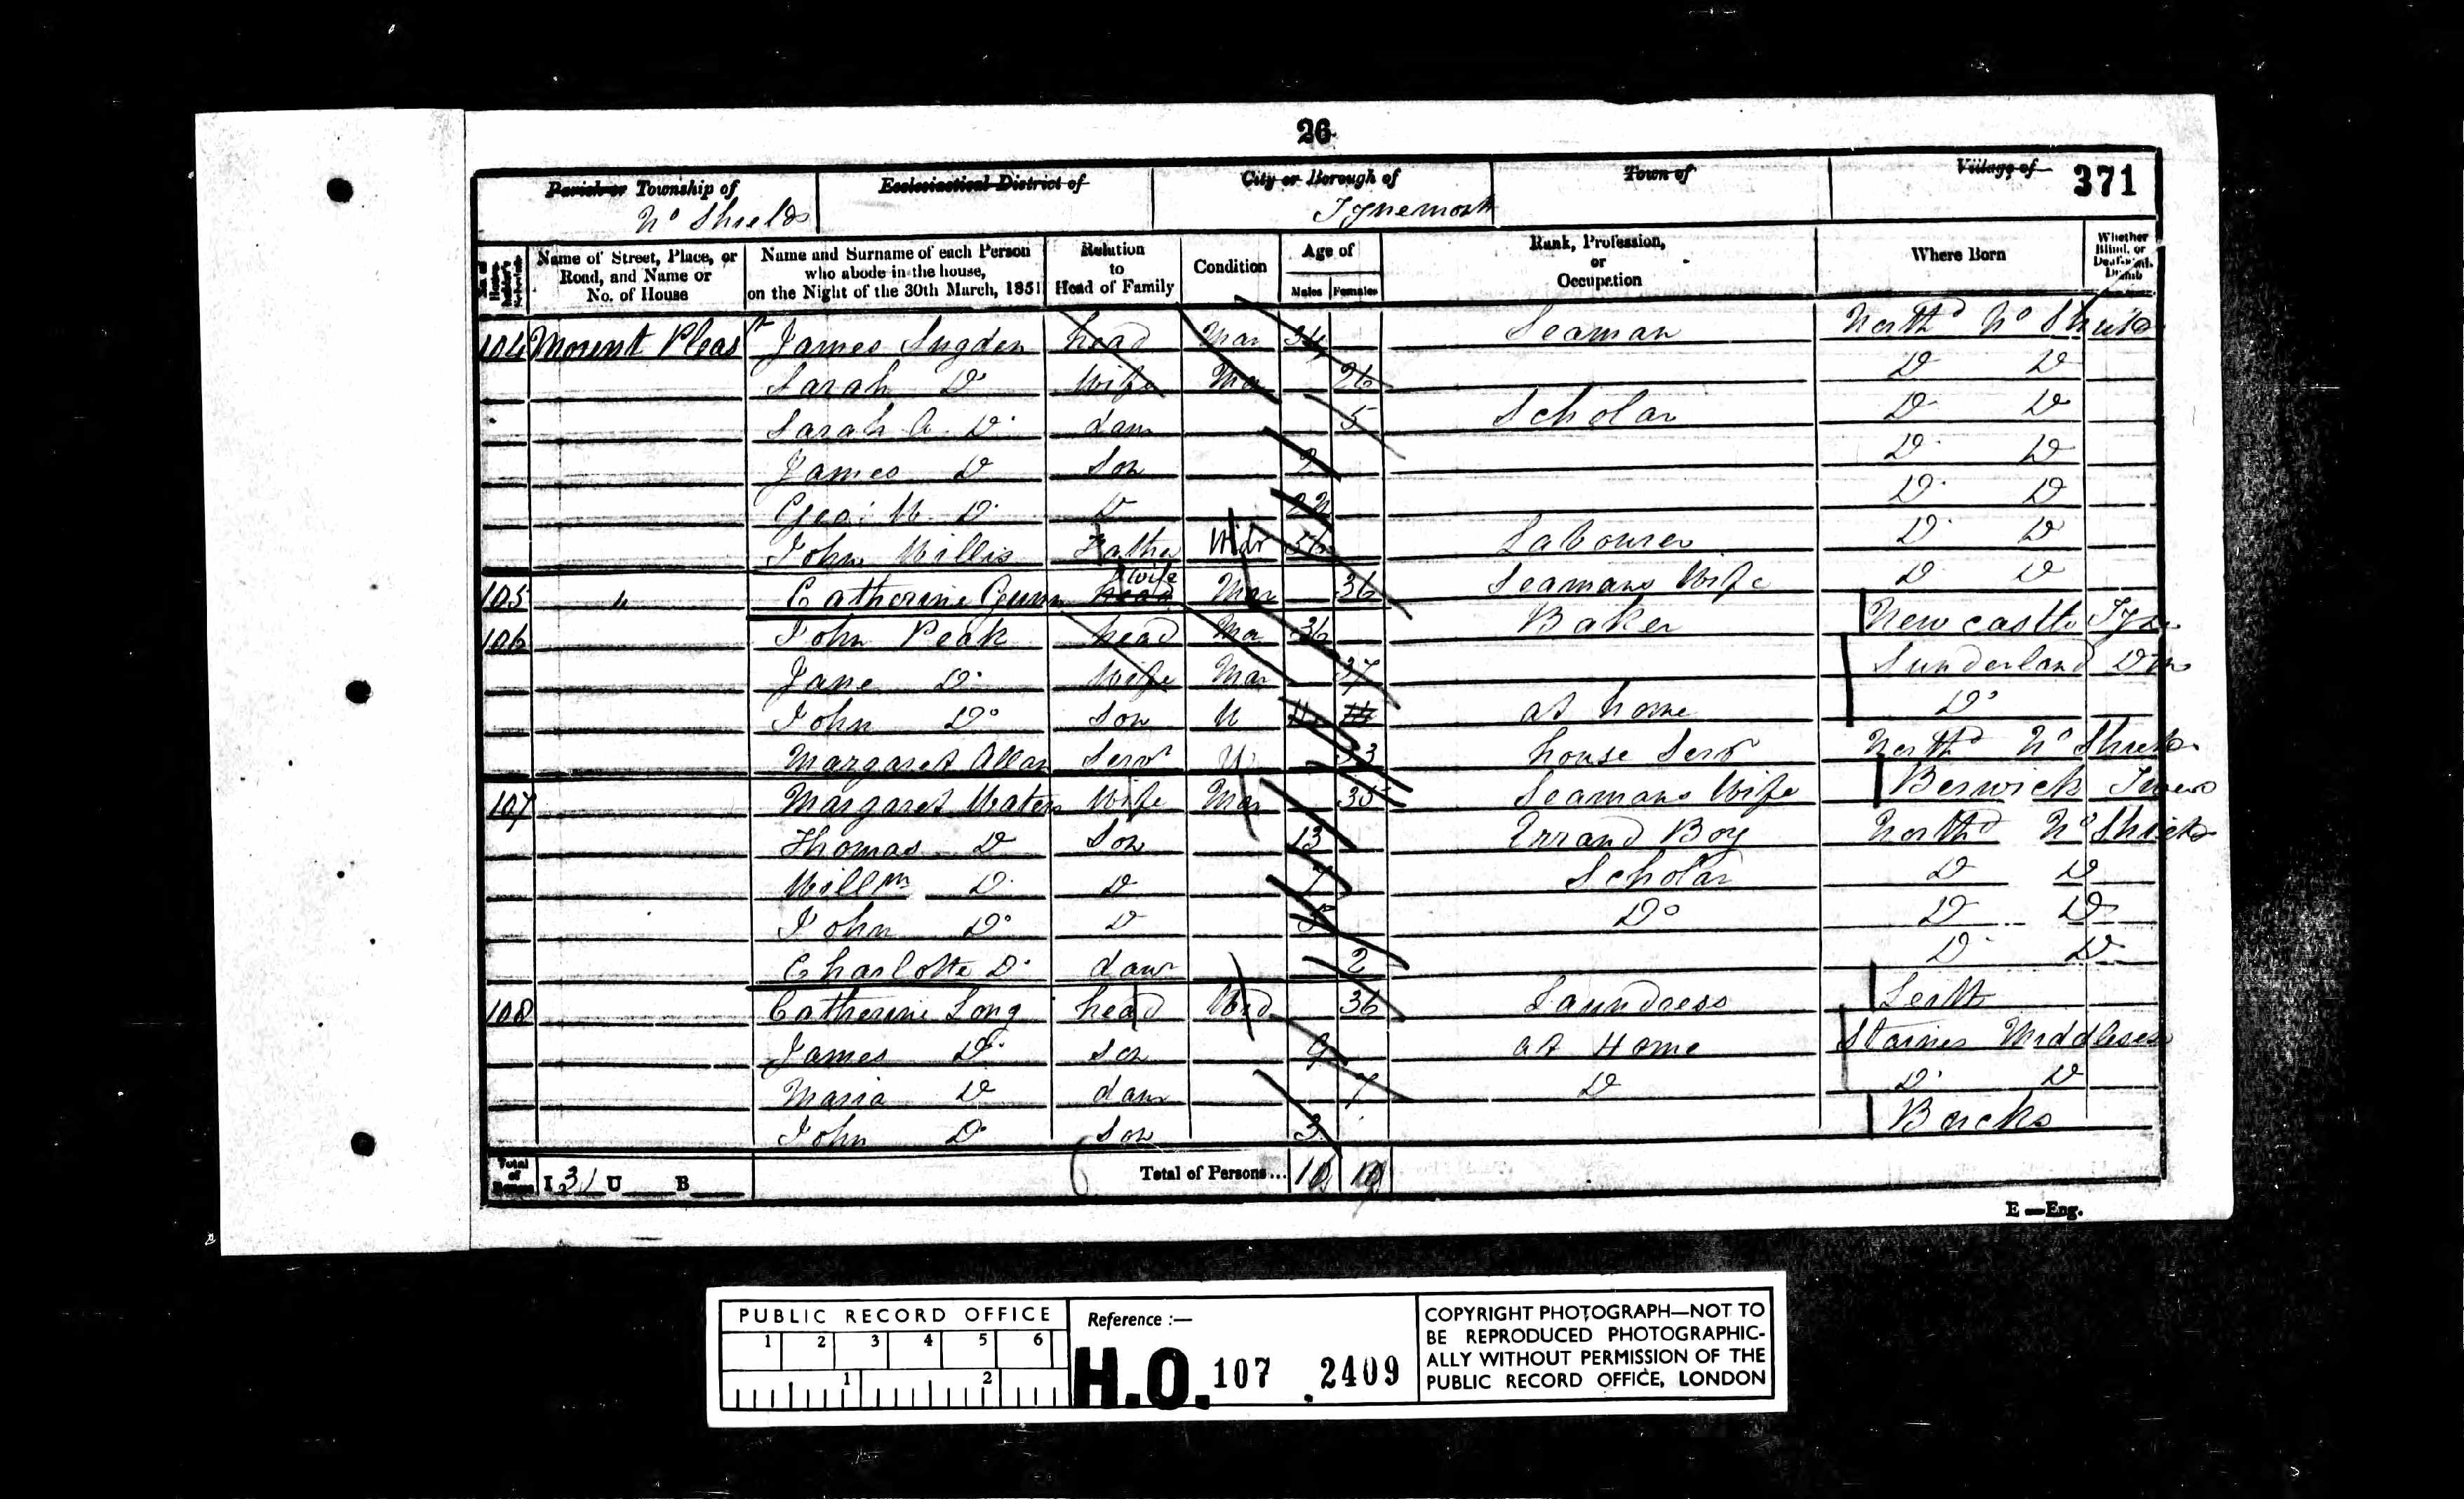 26
Parish or Township of Ecclesiastical District of City or Borough of Town of Village of 371
No Shields Tynemouth
No. of House-holder's Schedule Name of Street, Place, or Road, and Name or No. of House Name and Surname of each Person who abode in the house, on the Night of the 30th March, 1851 Relation to Head of Family Condition Age of Males Females Rank, Profession, or Occupation Where Born Whether Blind, or Deaf-and-Dumb
104 Mount Pleast James Sugden head Mar 34 Seaman Northd No Shields
Sarah Do Wife Mar 26 Do Do
Sarah A. Do daur 5 Scholar Do Do
James Do Son 2 Do Do
Geo: W. Do Do Do Do
John Willis Father Widr Labourer Do Do
105 " Catherine Gunn head wife Mar 36 Seamans Wife Do Do
106 John Peak head Mar 36 Baker Newcastle Tyne
Jane Do Wife Mar 37 Sunderland Dm
John Do Son U 14 at home Do
Margaret Allan Servt U 33 house Servt Northd No Shields
107 Margaret Waters Wife Mar 35 Seamans Wife Berwick Tweed
Thomas Do Son 13 Errand Boy Northd No Shields
Willm Do Do 7 Scholar Do Do
John Do Do 5 Do Do Do
Charlotte Do daur 2 Do Do
108 Catherine Long head Wid 36 Laundress Leith
James Do Son 9 at Home Staines Middlesex
Maria Do daur 7 Do Do Do
John Do Son 3 Bucks
Total of Houses I 3 U B Total of Persons... 10 10
E—Eng.
PUBLIC RECORD OFFICE
1 2 3 4 5 6
1 2
Reference :—
H.O. 107 . 2409
COPYRIGHT PHOTOGRAPH—NOT TO
BE REPRODUCED PHOTOGRAPHIC-
ALLY WITHOUT PERMISSION OF THE
PUBLIC RECORD OFFICE, LONDON